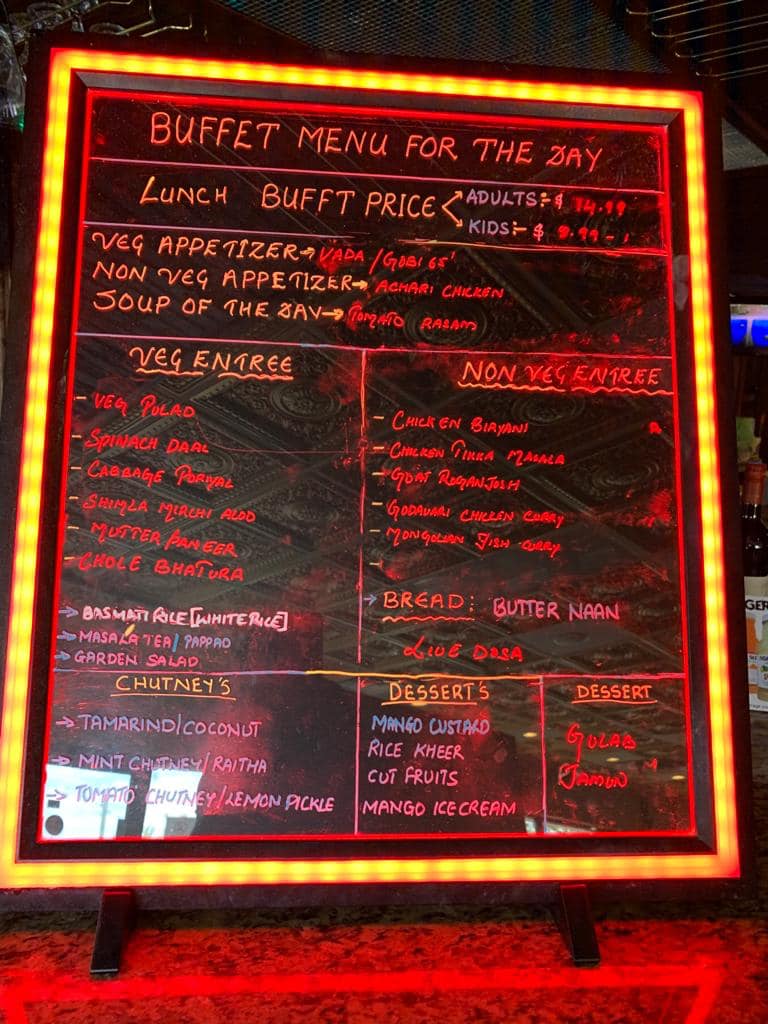 BUFFET MENU FOR THE DAY
LUNCH BUFFT PRICE
ADULTS:- $ 14.99
KIDS:- $ 9.99
VEG APPETIZER→ VADA / GOBI 65'
NON VEG APPETIZER→ ACHARI CHICKEN
SOUP OF THE DAY→ TOMATO RASAM
VEG ENTREE
- VEG PULAO
- SPINACH DAAL
- CABBAGE PORIYAL
- SHIMLA MIRCHI ALOO
- MUTTER PANEER
- CHOLE BHATURA
→ BASMATI RICE [WHITE RICE]
→ MASALA TEA / PAPPAD
→ GARDEN SALAD
NON VEG ENTREE
- CHICKEN BIRYANI
- CHICKEN TIKKA MASALA
- GOAT ROGANJOSH
- GODAVARI CHICKEN CURRY
- MONGOLIAN FISH CURRY
-
→ BREAD: BUTTER NAAN
LIVE DOSA
CHUTNEY'S
→ TAMARIND/COCONUT
→ MINT CHUTNEY/RAITHA
→ TOMATO CHUTNEY/LEMON PICKLE
DESSERT'S
MANGO CUSTARD
RICE KHEER
CUT FRUITS
MANGO ICE CREAM
DESSERT
GULAB
JAMUN